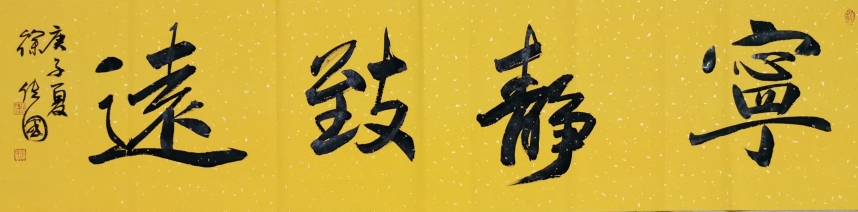 寧靜致遠
庚子夏
徐佳國